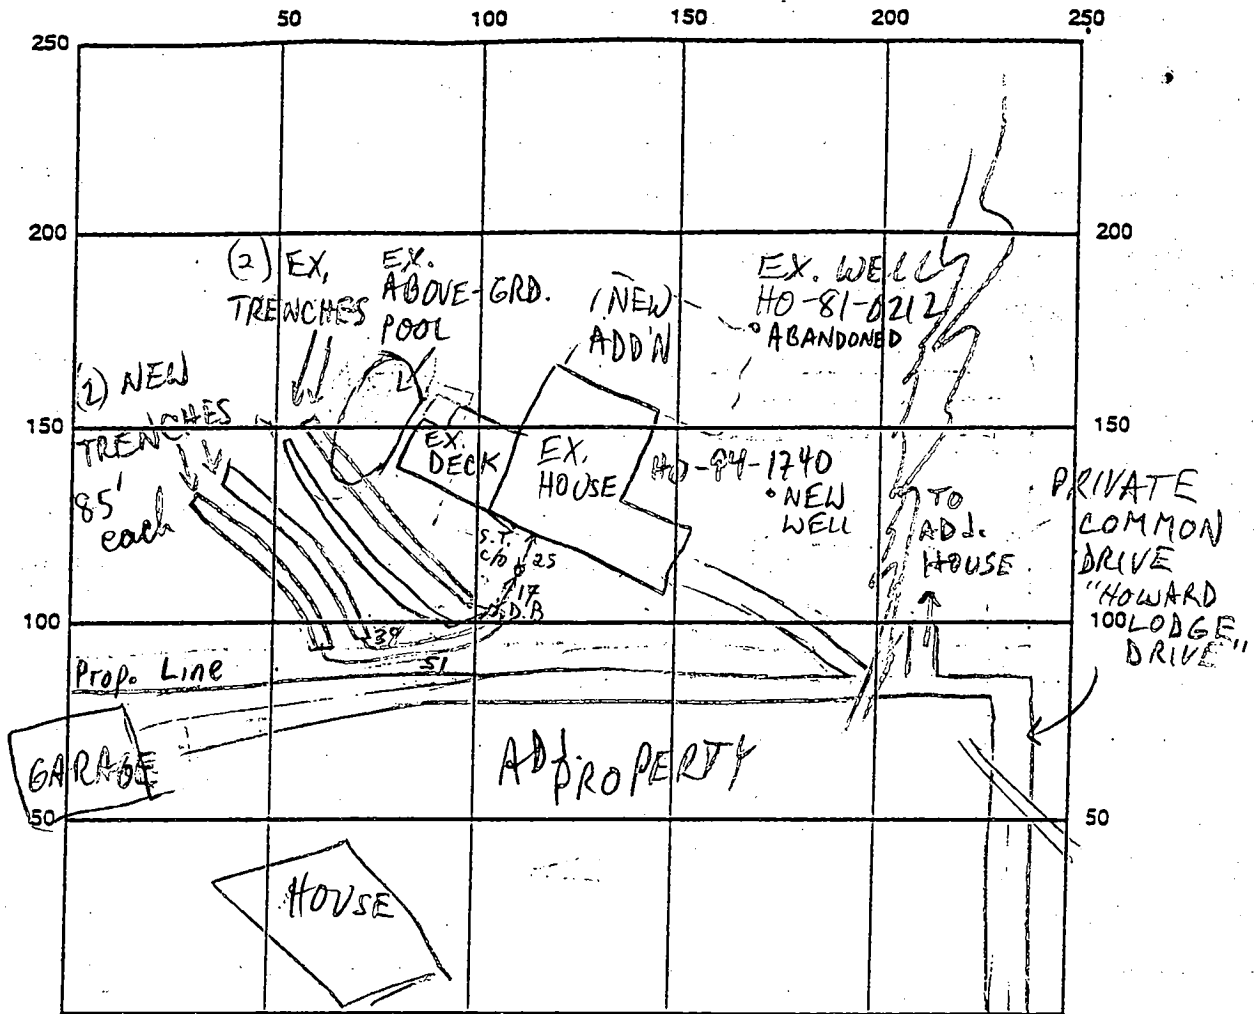 50 100 150 200 250
250
200 200
(2) EX,
TRENCHES
EX.
ABOVE-GRD.
POOL
(NEW
ADD'N
EX. WELL
HO-81-0212
ABANDONED
(2) NEW
TRENCHES
85'
each
150 150
EX.
DECK
EX.
HOUSE
HO-94-1740
NEW
WELL
TO
ADJ.
HOUSE
PRIVATE
COMMON
DRIVE
"HOWARD
LODGE
DRIVE"
S.T.
C/O
25
17
D.B
100 100
39
51
Prop. Line
GARAGE
ADJ.
PROPERTY
50 50
HOUSE